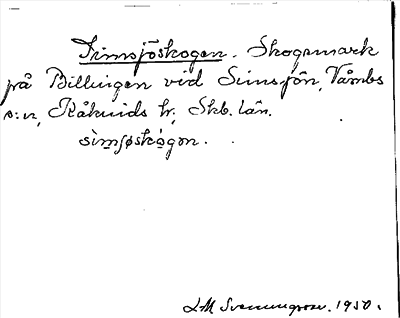 Simsjöskogen. Skogsmark
på Billingen vid Simsjön, Våmbs
s:n, Kåkinds hr, Skb. län.
sìmʃøskógon.
LM Svenungsson. 1950.